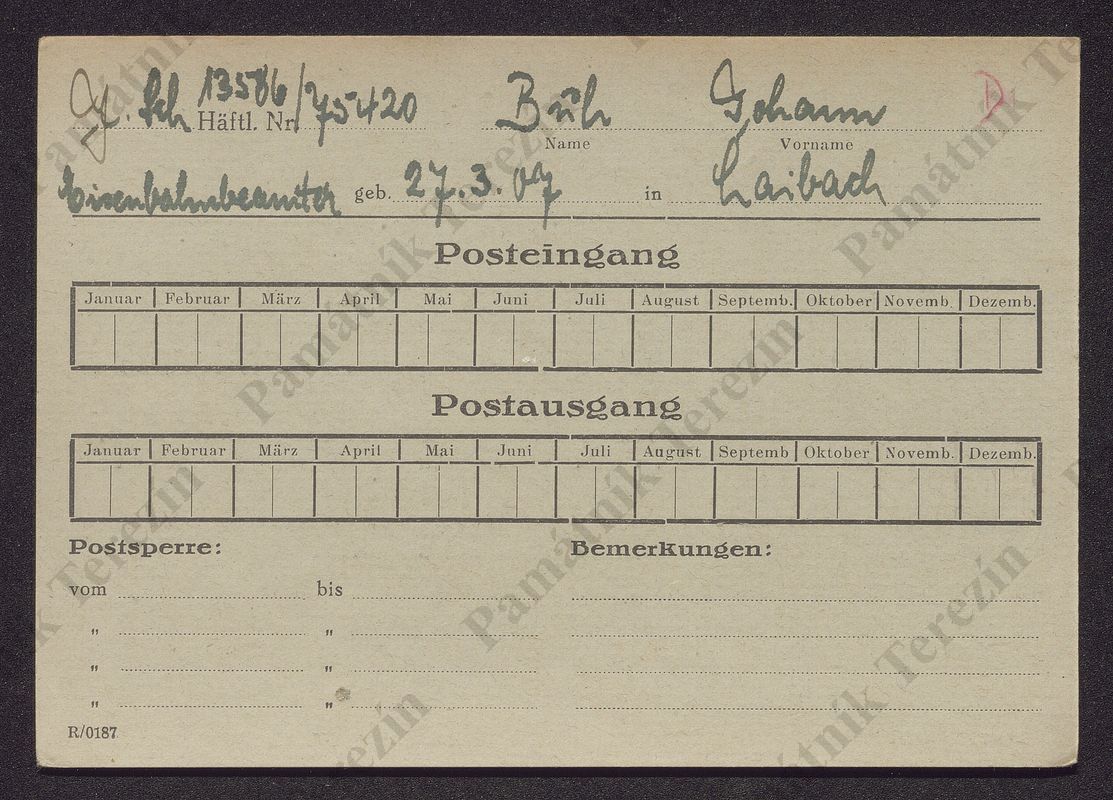 Sch 13586/75420 Buh Johann D
Häftl. Nr.
Name Vorname
Eisenbahnbeamter geb. 27.3.07 in Laibach
Posteingang
Januar Februar März April Mai Juni Juli August Septemb. Oktober Novemb. Dezemb.
Postausgang
Januar Februar März April Mai Juni Juli August Septemb Oktober Novemb. Dezemb.
Postsperre: Bemerkungen:
vom bis
" "
" "
" "
R/0187
Památník Terezín